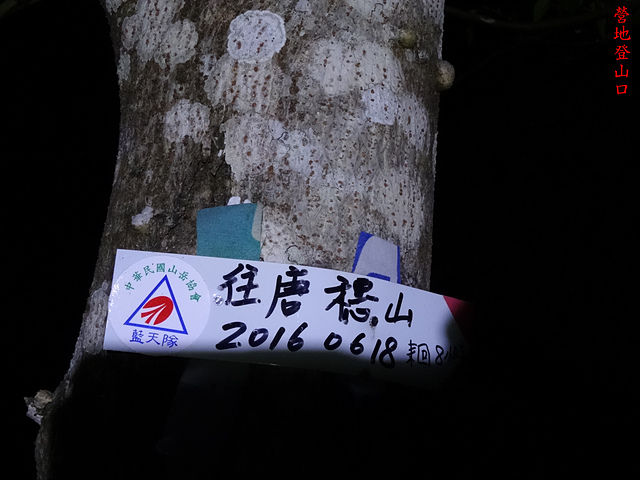 營地登山口
中華民國山岳協會
藍天隊
往唐穗山
20160618